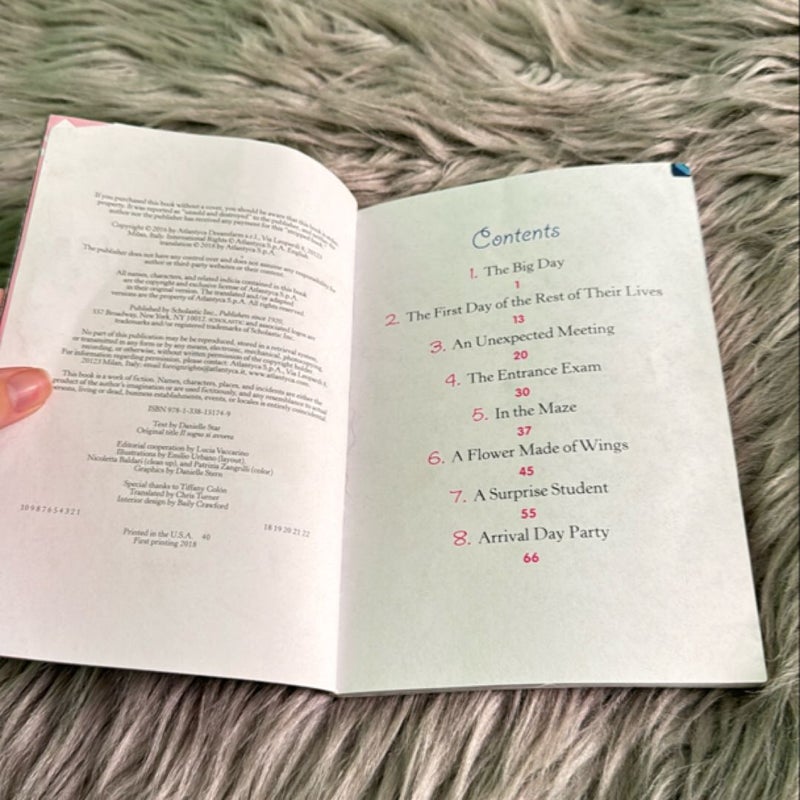 If you purchased this book without a cover, you should be aware that this book is stolen
property. It was reported as "unsold and destroyed" to the publisher, and neither the
author nor the publisher has received any payment for this "stripped book."
Copyright © 2016 by Atlantyca Dreamfarm s.r.l., Via Leopardi 8, 20123
Milan, Italy. International Rights © Atlantyca S.p.A. English
translation © 2018 by Atlantyca S.p.A.
The publisher does not have any control over and does not assume any responsibility for
author or third-party websites or their content.
All names, characters, and related indicia contained in this book
are the copyright and exclusive license of Atlantyca S.p.A.
in their original version. The translated and/or adapted
versions are the property of Atlantyca S.p.A. All rights reserved.
Published by Scholastic Inc., Publishers since 1920,
557 Broadway, New York, NY 10012. SCHOLASTIC and associated logos are
trademarks and/or registered trademarks of Scholastic Inc.
No part of this publication may be reproduced, stored in a retrieval system,
or transmitted in any form or by any means, electronic, mechanical, photocopying,
recording, or otherwise, without written permission of the copyright holder.
For information regarding permission, please contact: Atlantyca S.p.A., Via Leopardi 8,
20123 Milan, Italy; email foreignrights@atlantyca.it, www.atlantyca.com.
This book is a work of fiction. Names, characters, places, and incidents are either the
product of the author's imagination or are used fictitiously, and any resemblance to actual
persons, living or dead, business establishments, events, or locales is entirely coincidental.
ISBN 978-1-338-15174-9
Text by Danielle Star
Original title Il sogno si avvera
Editorial cooperation by Lucia Vaccarino
Illustrations by Emilio Urbano (layout),
Nicoletta Baldari (clean up), and Patrizia Zangrilli (color)
Graphics by Danielle Stern
Special thanks to Tiffany Colón
Translated by Chris Turner
Interior design by Baily Crawford
10 9 8 7 6 5 4 3 2 1 18 19 20 21 22
Printed in the U.S.A. 40
First printing 2018
Contents
1. The Big Day
1
2. The First Day of the Rest of Their Lives
13
3. An Unexpected Meeting
20
4. The Entrance Exam
30
5. In the Maze
37
6. A Flower Made of Wings
45
7. A Surprise Student
55
8. Arrival Day Party
66